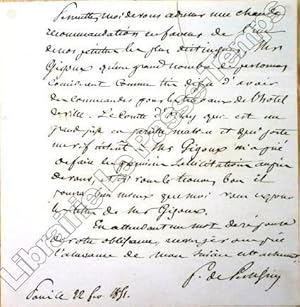 Permettez moi de vous adresser une chaude
recommandation en faveur de l'un
de nos peintres les plus distingués, Mr
Gigoux qu'un grand nombre de personnes
considèrent comme très digne d'avoir
des commandes pour les travaux de l'hôtel
de ville. Le Comte d'Orsay qui est un
grand juge en pareille matière et qui porte
un vif intérêt à Mr Gigoux m'a prié
de faire la première sollicitation auprès
de vous, et si vous le trouvez bon il
pourra bien mieux que moi vous exposer
les titres de Mr Gigoux.
En attendant un mot de réponse
de votre obligeance, recevez
l'assurance de mon sincère attachement
F. de Persigny
Paris le 22 1851.
Librairie Le Passe-Temps